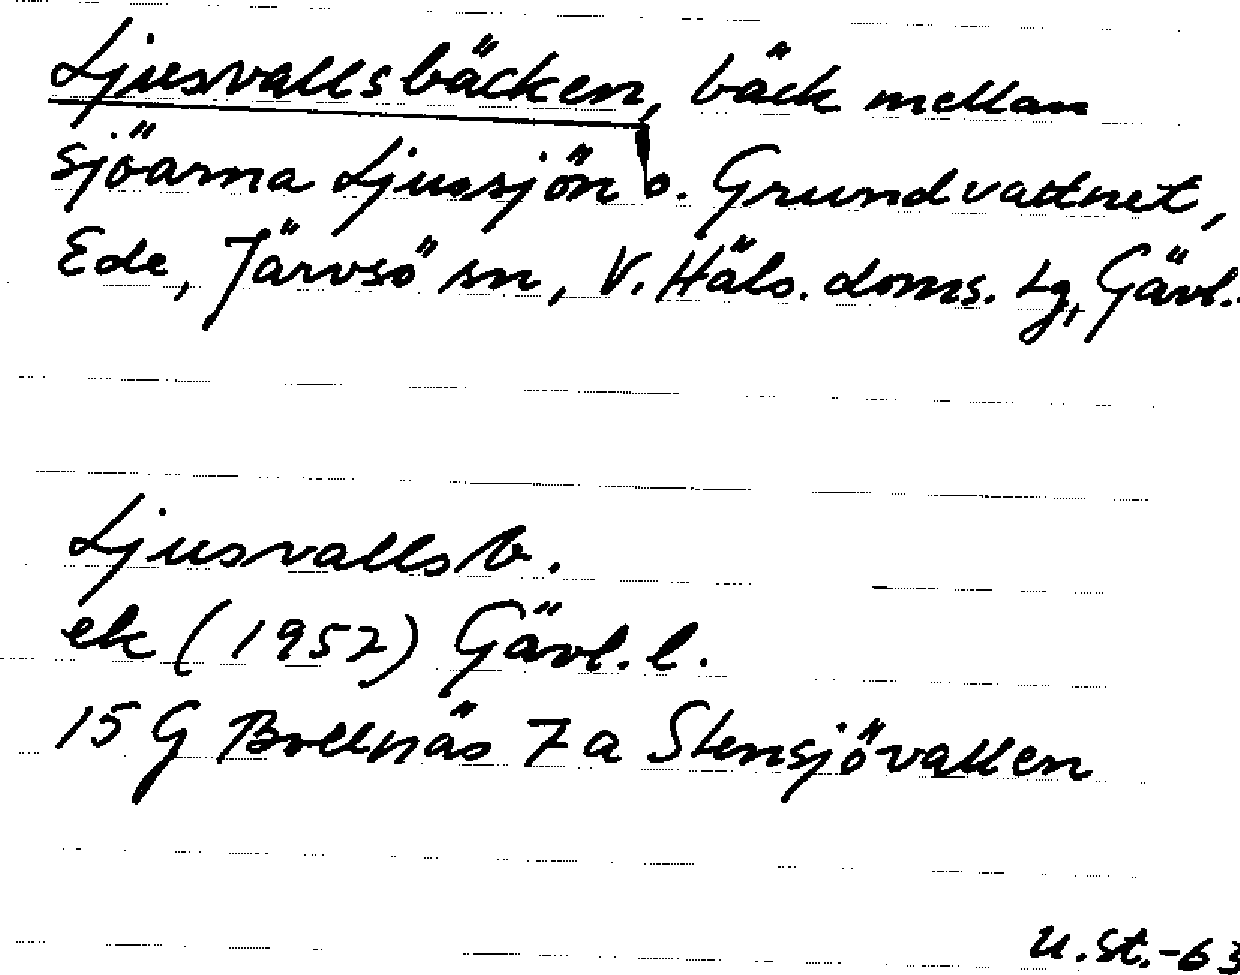 Ljusvallsbäcken, bäck mellan
sjöarna Ljussjön o. Grundvattnet,
Ede, Järvsö sn, V. Häls. doms. tg, Gävl.
Ljusvallsb.
ek (1952) Gävl. l.
15 G Bollnäs 7 a Stensjövallen
U. St. -63